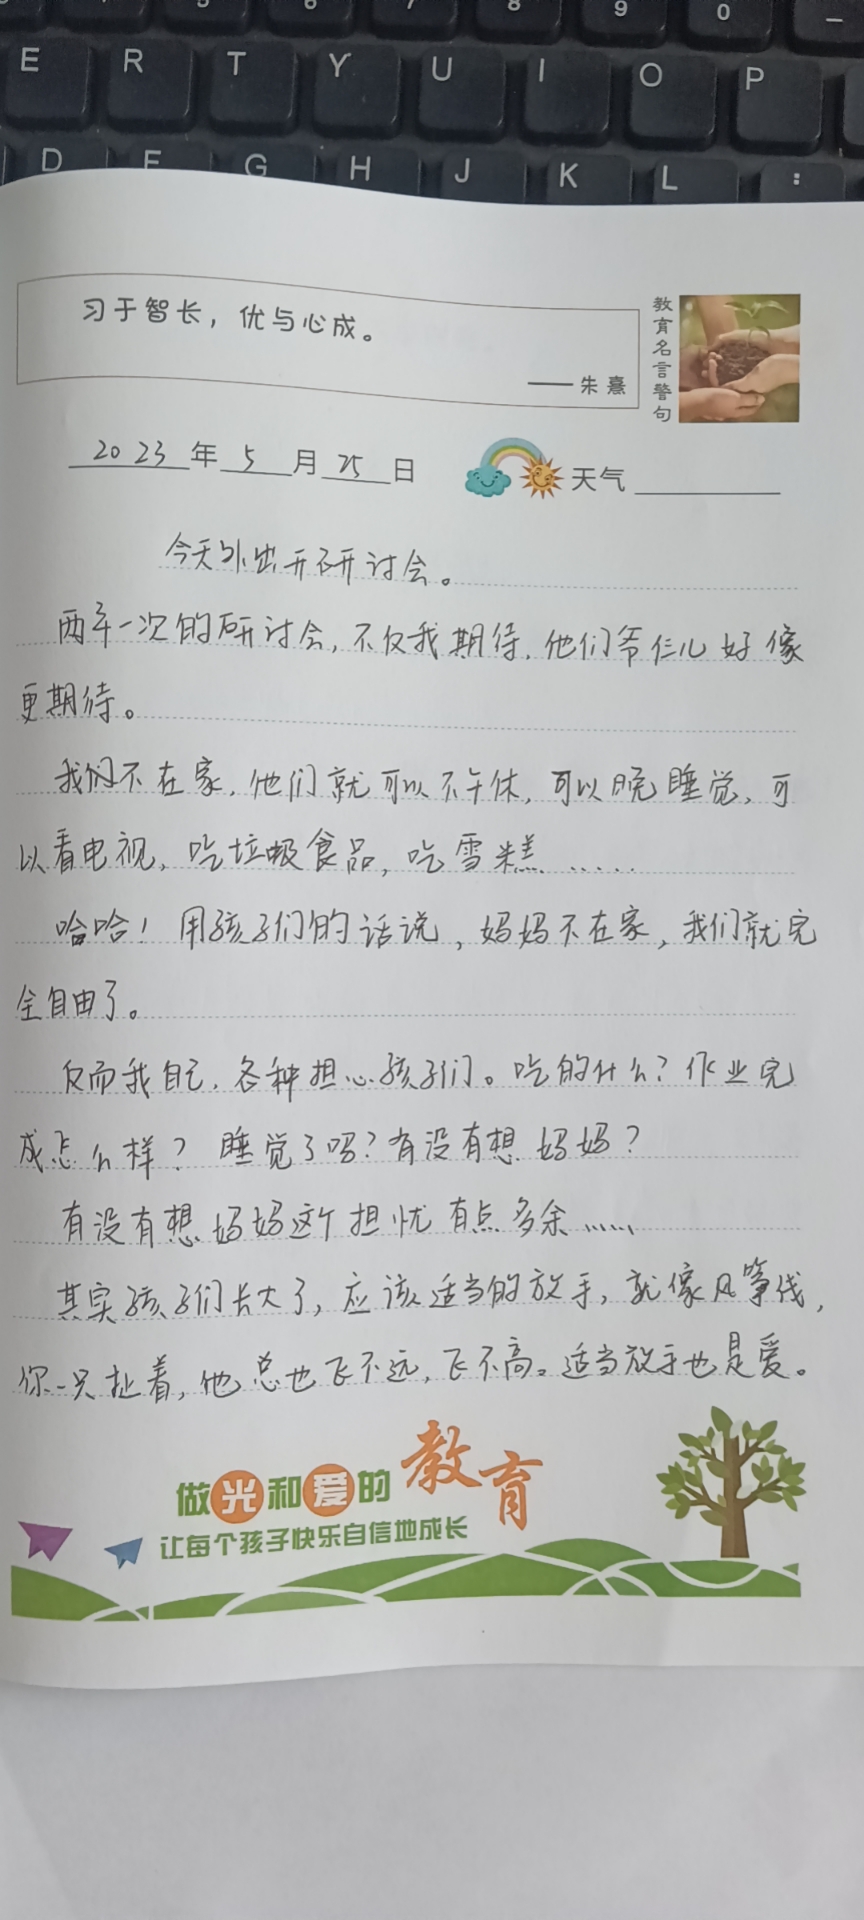 5 6 7 8 9 0 —
E R T Y U I O P
D F G H J K L :
习于智长，优与心成。
——朱熹
教育名言警句
2023年5月25日 天气
今天外出开研讨会。
两年一次的研讨会，不仅我期待，他们爷仨儿好像
更期待。
我们不在家，他们就可以不午休，可以晚睡觉，可
以看电视，吃垃圾食品，吃雪糕……
哈哈！用孩子们的话说，妈妈不在家，我们就完
全自由了。
反而我自己，各种担心孩子们。吃的什么？作业完
成怎么样？睡觉了吗？有没有想妈妈？
有没有想妈妈这个担忧有点多余……
其实孩子们长大了，应该适当的放手，就像风筝线，
你一只扯着，他总也飞不远，飞不高。适当放手也是爱。
做光和爱的教育
让每个孩子快乐自信地成长